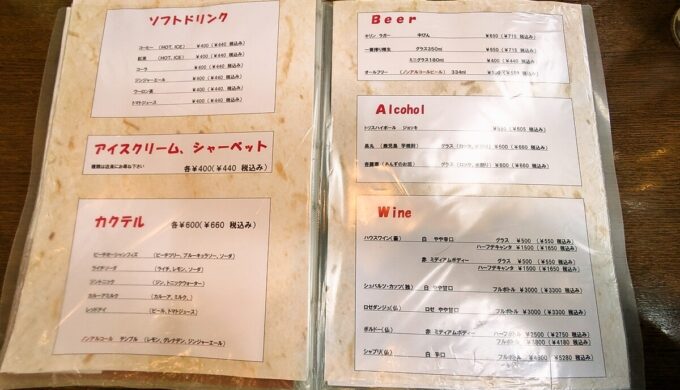 ソフトドリンク
コーヒー (HOT, ICE) ¥400 (¥440 税込み)
紅茶 (HOT, ICE) ¥400 (¥440 税込み)
コーラ ¥400 (¥440 税込み)
ジンジャーエール ¥400 (¥440 税込み)
ウーロン茶 ¥400 (¥440 税込み)
トマトジュース ¥400 (¥440 税込み)
アイスクリーム、シャーベット
種類は店員にお尋ね下さい 各¥400(¥440 税込み)
カクテル 各¥600(¥660 税込み)
ピーチオーシャンフィズ (ピーチツリー、ブルーキュラソー、ソーダ)
ライチソーダ (ライチ、レモン、ソーダ)
ジントニック (ジン、トニックウォーター)
カルーアミルク (カルーア、ミルク、)
レッドアイ (ビール、トマトジュース)
ノンアルコール テンプル (レモン、グレナデン、ジンジャーエール)
Beer
キリン ラガー 中びん ¥650 (¥715 税込み)
一番搾り樽生 グラス350ml ¥650 (¥715 税込み)
ミニグラス180ml ¥400 (¥440 税込み)
オールフリー (ノンアルコールビール) 334ml 税込み)
Alcohol
トリスハイボール ジョッキ (¥605 税込み)
黒丸 (鹿児島 芋焼酎) グラス (ロック、水割り) ¥600 (¥660 税込み)
杏露酒 (あんずのお酒) グラス (ロック、水割り) ¥600 (¥660 税込み)
Wine
ハウスワイン 白 やや辛口 グラス ¥500 (¥550 税込み)
ハーフデキャンタ ¥1500 (¥1650 税込み)
赤 ミディアムボディー グラス ¥500 (¥550 税込み)
ハーフデキャンタ ¥1500 (¥1650 税込み)
シュバルツ・カッツ(独) 白 やや甘口 フルボトル ¥3000 (¥3300 税込み)
ロゼダンジュ(仏) ロゼ やや甘口 フルボトル ¥3000 (¥3300 税込み)
ボルドー(仏) 赤 ミディアムボディー ハーフボトル ¥2500 (¥2750 税込み)
フルボトル ¥3800 (¥4180 税込み)
シャブリ(仏) 白 辛口 フルボトル ¥4800 (¥5280 税込み)